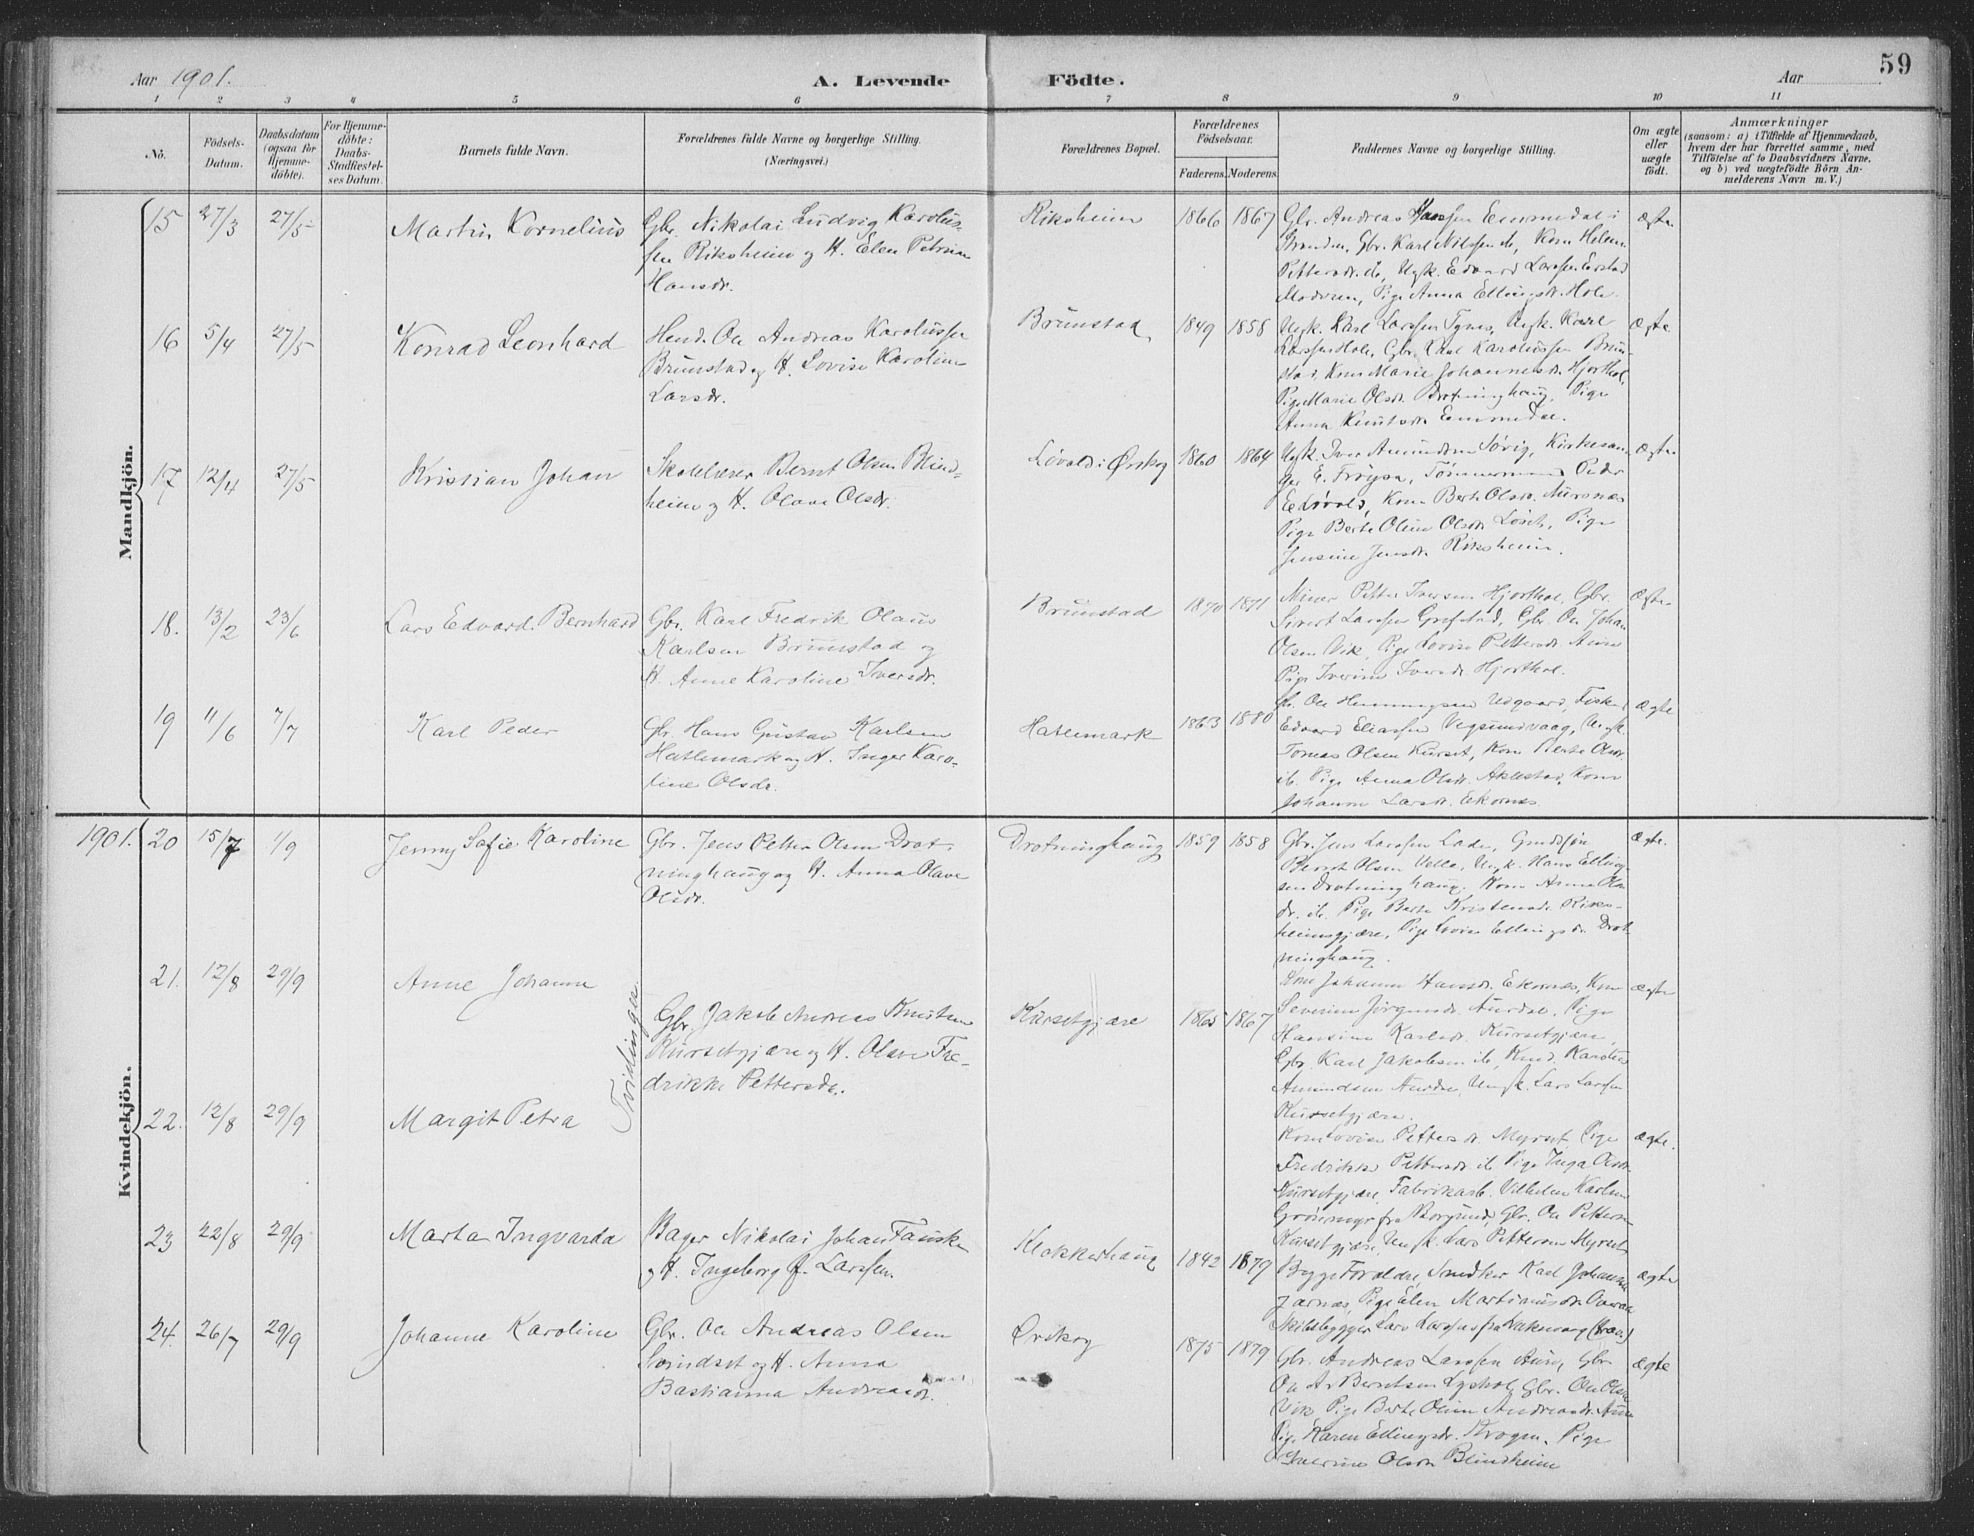 59
Aar 1901.
A. Levende Födte.
Aar
1 2 3 4 5 6 7 8 9 10 11
No.
Födsels-Datum.
Daabsdatum (ogsaa for Hjemme-döbte).
For Hjemme-döbte: Daabs-Stadfæstel-ses Datum.
Barnets fulde Navn.
Forældrenes fulde Navne og borgerlige Stilling.
(Næringsvei.)
Forældrenes Bopæl.
Forældrenes Födselsaar.
Faderens. Moderens.
Faddernes Navne og borgerlige Stilling.
Om ægte eller uægte födt.
Anmærkninger
(saasom: a) i Tilfælde af Hjemmedaab, hvem der har forrettet samme, med Tilföielse af to Daabsvidners Navne, og b) ved uægtefödte Börn An-melderens Navn m. V.)
Mandkjön.
15 27/3 27/5 Martin Kornelius
Gbr. Nikolai Ludvig Karolus-
sen Riksheim og H. Elen Petrine
Hansdr.
Riksheim 1866 1867
Gbr. Andreas Hansen Emmedal i
Stranden, Gbr. Karl Nilssen ib, Kone Helene
Pettersdr. ib, Ungk. Edvard Larssen
Moderen, Pige Anna Ellingsdr. Hole.
ægte
16 5/4 27/5 Konrad Leonhard
Hend. Ole Andreas Karolussen
Brunstad og H. Lovise Karoline
Larsdr.
Brunstad 1849 1858
Ungk. Karl Larssen Tynes, Ungk. Karl
Larssen Hole, Gbr. Karl Karolussen Brun-
stad, Kone Marie Johannesdr. Hjorthol,
Pige Marie Olsdr. Drotninghaug, Pige
Anna Knutsdr. Emmedal.
ægte
17 12/4 27/5 Kristian Johan
Skolelærer Bernt Olsen Blind-
heim og H. Olave Olsdr.
Løvold i Ørskog 1860 1864
Ungk. Iver Amundsen Søvig, Kirkesan-
ger E. Frøysa, Tømmermand Peder
E. Løvold, Kone Berte Olsdr. Aursnes
Pige Berte Oline Olsdr. Løset, Pige
Jensine Jensdr. Riksheim.
ægte
18. 13/2 23/6 Lars Edvard Bernhard
Gbr. Karl Fredrik Olaus
Karlsen Brunstad og
H. Anne Karoline Iversdr.
Brunstad 1870 1871
Petter Iversen Hjorthol, Gbr.
Sivert Larssen Grefstad, Gbr. Ole Johan
Olsen Vik, Pige Lovise Pettersdr. Aure
Pige Iverine Iversdr. Hjorthol.
ægte
19 11/6 7/7 Karl Peder
Gbr. Hans Gustav Karlsen
Hatlemark og H. Inger Karo-
line Olsdr.
Hatlemark 1863 1880
Gbr. Ole Henningsen Udgaard, Fisker
Edvard Eliassen Vegsundvaag, Ungk.
Tomas Olsen Kurset, Kone Berte Olsdr.
ib. Pige Anna Olsdr. Aklestad, Kone
Johanne Larsdr. Ekornes.
ægte
Kvindekjön.
1901. 20 15/7 1/9 Jenny Sofie Karoline
Gbr. Jens Petter Olsen Drot-
ninghaug og H. Anna Olave
Olsdr.
Drotninghaug 1859 1858
Gbr. Jens Larssen Lade,
Bernt Olsen Velle, Ungk. Hans Elling-
sen Drotninghaug. Kone Anne Ols-
dr. ib. Pige Berte Kristensdr. Riks-
heimsgjære, Pige Lovise Ellingsdr. Drot-
ninghaug.
ægte.
21. 12/8 29/9 Anne Johanne
Tvillinger.
Gbr. Jakob Andreas Knutsen
Kursetgjære og H. Olave Fre-
drikke Pettersdr.
Kursetgjære 1865 1867
Kone Johanne Hansdr. Ekornes, Kone
Severine Jørgensdr. Aurdal, Pige
Hansine Karlsdr. Kursetgjære,
Gbr. Karl Jakobsen ib, Karolus
Amundsen Aurdal, Ungk. Lars Larssen
Kursetgjære.
ægte
22. 12/8 29/9 Margit Petra
Kone Lovise Pettersdr. Myrset, Pige
Fredrikke Pettersdr. ib Pige Inga Olsdr.
Kursetgjære, Fabrikarb. Vilhelm Karlsen
Grønmyr fra Borgund, Gbr. Ole Petterse
Kursetgjære, Ungk. Lars Pettersen Myrset
ægte.
23 22/8 29/9 Marta Ingvarda
Bager Nikolai Johan Fauske
og H. Ingeborg f. Larssen.
Klokkerhaug 1842 1879
Begge Forældre, Snedker Karl Johannes
Jarnes, Pige Elen Martinusdr.
Skibsbygger Lars Larssen fra
ægte
24. 26/7 29/9 Johanne Karoline
Gbr. Ole Andreas Olsen
og H. Anna
Bastianna Andreasdr.
Ørskog 1875 1879
Gbr. Andreas Larssen Aure, Gbr.
Ole A. Berntsen Lyshol, Gbr. Ole Olsen
Vik, Pige Berte Oline Andreasdr. Aure
Pige Karen Ellingsdr. Krogen, Pige
Severine Olsdr. Blindheim
ægte